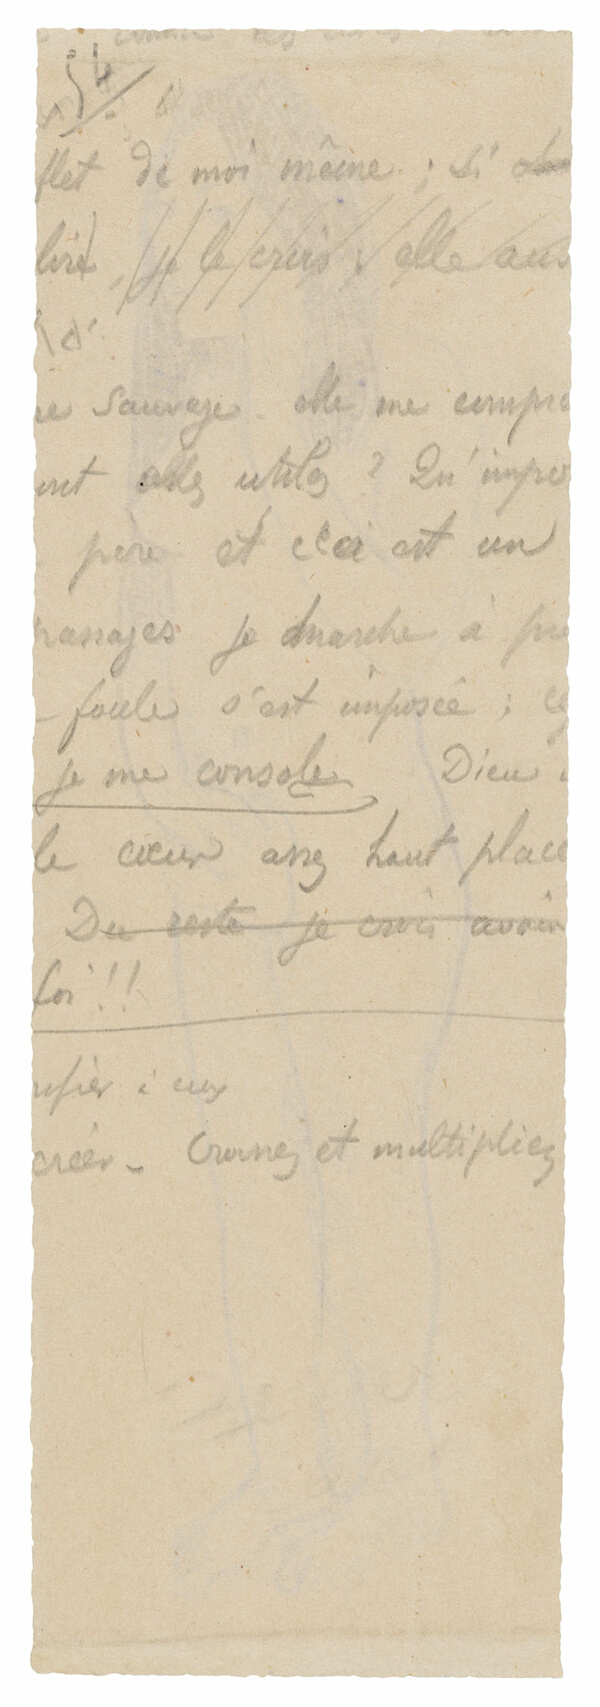 flet de moi même ; si
lire, je le crois ; elle aus
d'
re sauvage. elle me compre
ont elles utiles ? Qu'impor
père et ceci est un
passages je marche à
foule s'est imposée ;
je me console Dieu
le cœur assez haut placé
Du reste je crois avoir
foi !!
ifier à eux
créer_ Croissez et multipliez